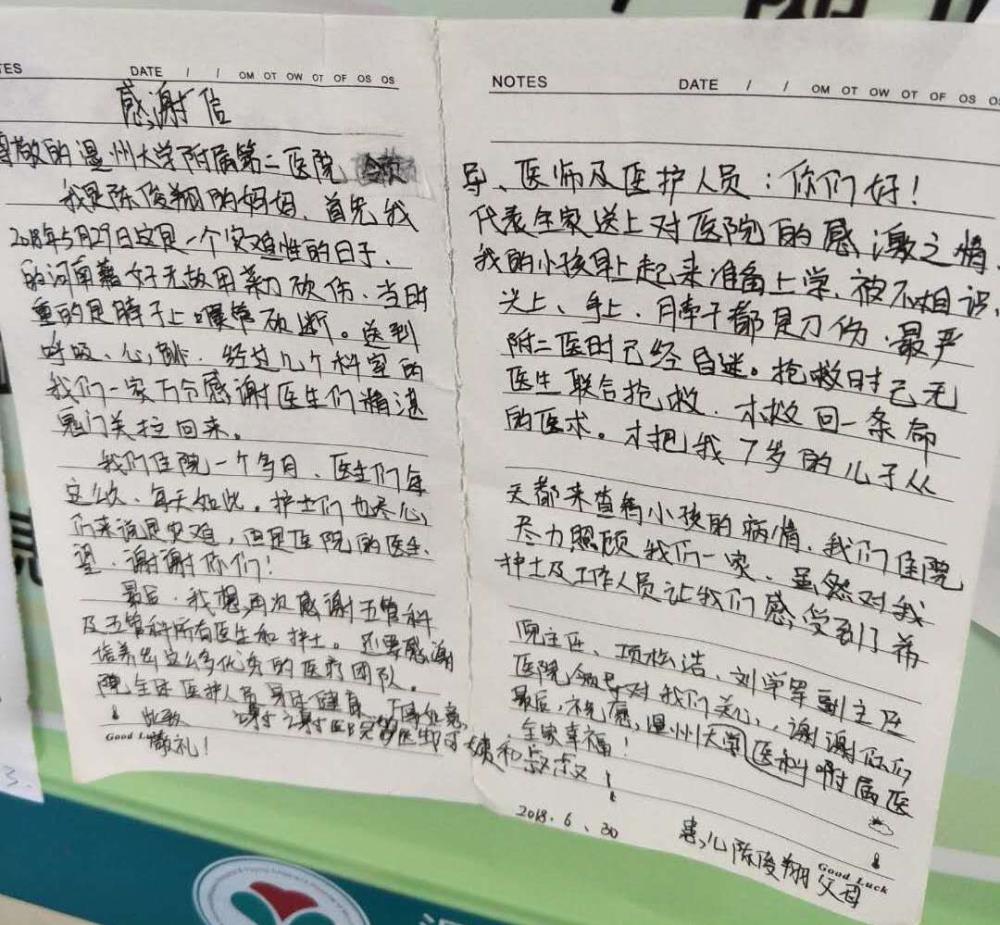 TES DATE / / OM OT OW OT OF OS OS
NOTES DATE / / OM OT OW OT OF OS
感谢信
尊敬的温州大学附属第二医院 导、医师及医护人员:你们好!
我是陈俊翔的妈妈、首先我 代表全家送上对医院的感激之情、
2018年5月29日这是一个灾难性的日子、 我的小孩早上起来准备上学、被不相识、
的河南籍好无故用菜刀砍伤、当时 头上、手上、子都是刀伤.最严
重的是脖子上喉管砍断。送到 附二医时已经昏迷。抢救时已无
呼吸、心跳. 经过几个科室的 医生联合抢救.才救回一条命
我们一家万分感谢医生们精湛 的医术。才把我7岁的儿子从
鬼门关拉回来。
我们住院一个多月、医生们每 天都来查看小孩的病情、我们住院
这么久、每天如此。护士们也尽心, 尽力照顾我们一家、虽然对我
们来说是灾难,但是医院的医生、 护士及工作人员让我们感受到了希
望.谢谢你们!
最后.我想再次感谢五管科 院主任、项松浩、刘学军副主任
及五管科所有医生和护士。还要感谢 医院领导对我们关心,谢谢你们
培养出这么多优秀的医疗团队。 最后,祝愿,温州大学医科附属医
院全体医护人员身体健康、万事如意, 全家幸福!
此致 谢谢医院的医生阿姨和叔叔
敬礼!
Good Luck
2018.6.30 患儿陈俊翔父母
Good Luck